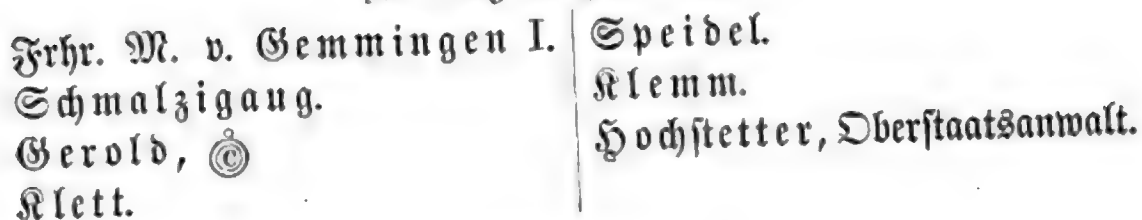 Frhr. M. v. Gemmingen I.
Schmalzigaug.
Gerold, ©
Klett.
Speidel.
Klemm.
Hochstetter, Oberstaatsanwalt.